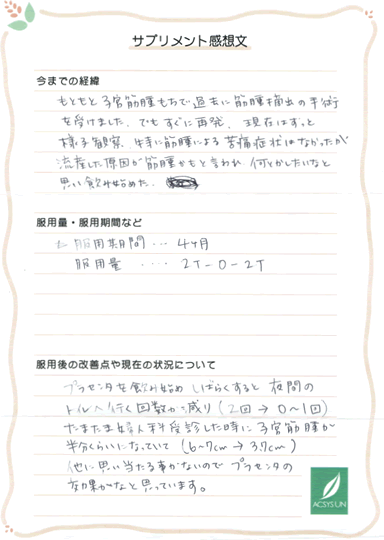 サプリメント感想文
今までの経緯
もともと子宮筋腫もちで過去に筋腫摘出の手術
を受けました。でもすぐに再発、現在はずっと
様子観察、特に筋腫による苦痛症状はなかったが
流産した原因が筋腫かもと言われ、何とかしたいなと
思い飲み始めた。
服用量・服用期間など
服用期間・・・4ヶ月
服用量・・・・2T-0-2T
服用後の改善点や現在の状況について
プラセンタを飲み始めしばらくすると夜間の
トイレへ行く回数が減り(2回→0~1回)
たまたま婦人科受診した時に子宮筋腫が
半分くらいになっていて(6~7cm→3.7cm)
他に思い当たる事がないのでプラセンタの
効果かなと思っています。
ACSYSUN